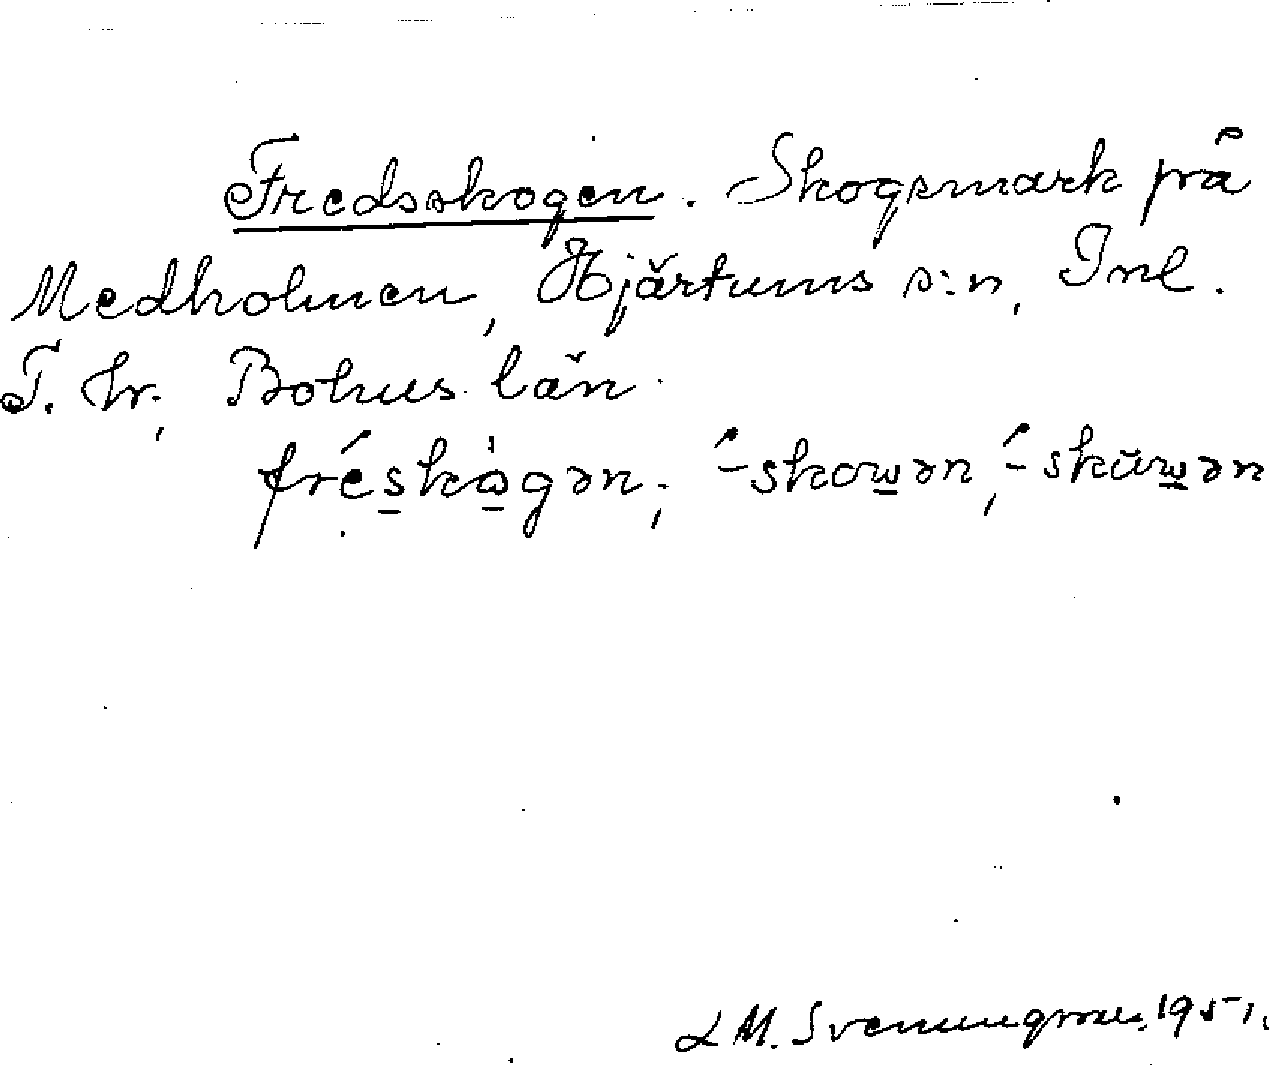 Fredsskogen. Skogsmark på
Medholmen, Hjärtums s:n, Inl.
T. hr, Bohus län.
fréskȯgən, ´-skowən, ´-skūwən
L M. Svenungsson. 1951.